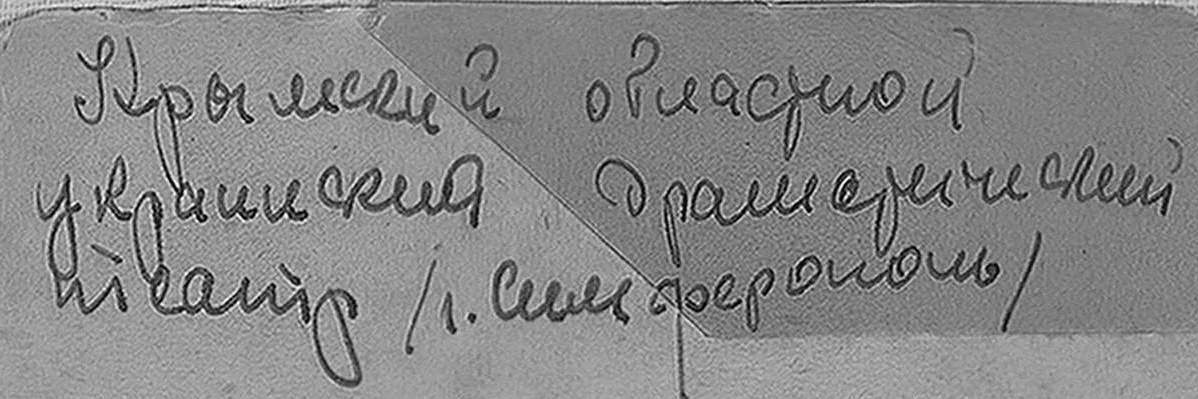 Крымский областной
украинский драматический
театр /г. Симферополь/